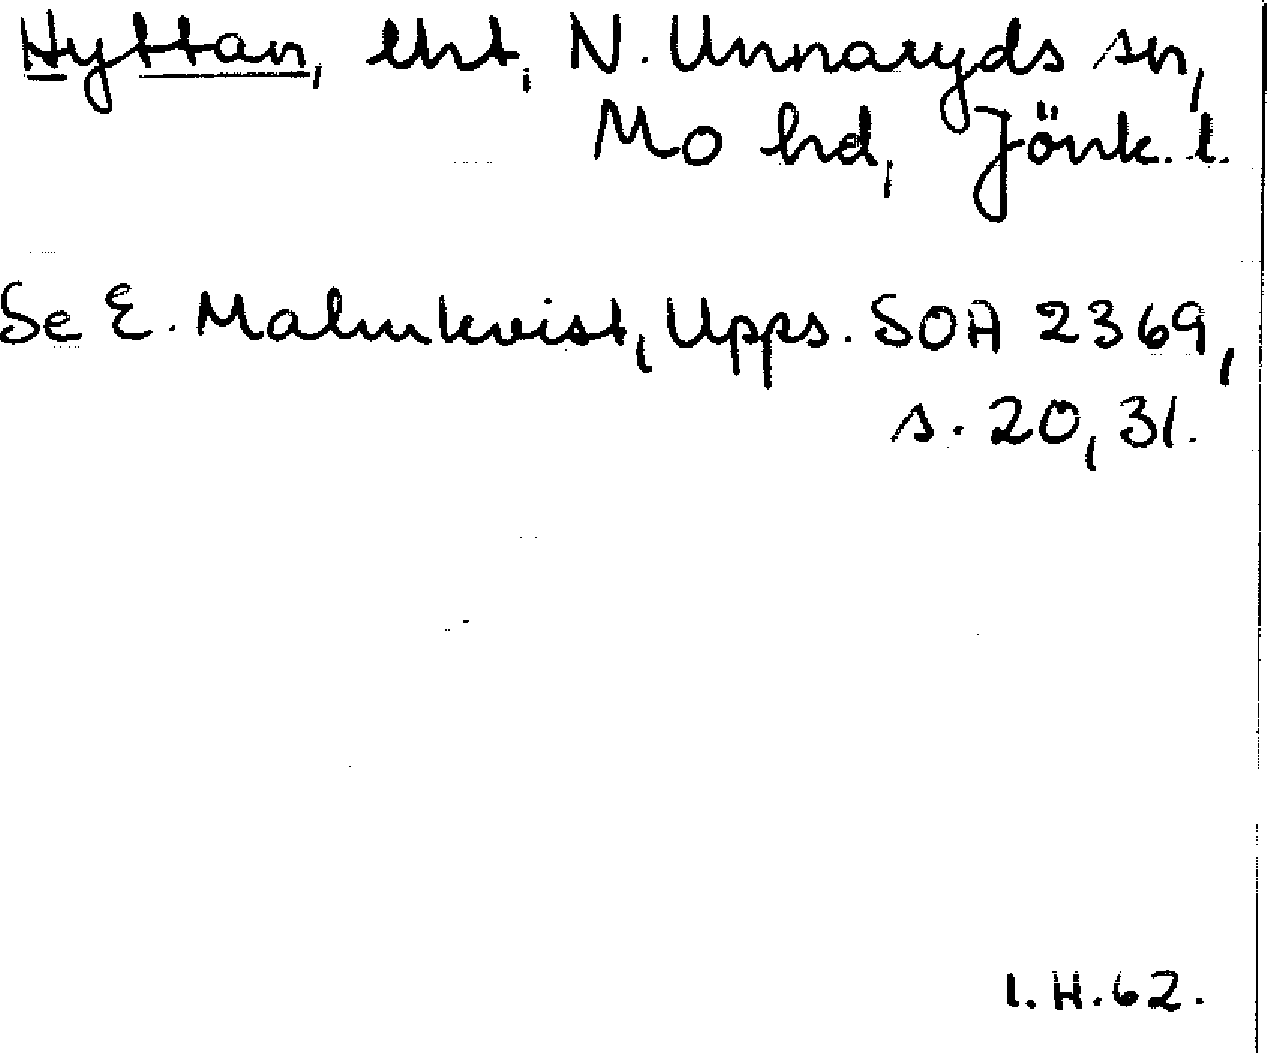 Hyttan, lht, N. Unnaryds sn,
Mo hd, Jönk. l.
Se E. Malmkvist, Upps. SOA 2369,
s. 20, 31.
I. H. 62.